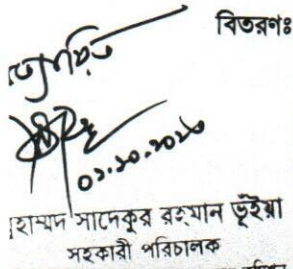 বিতরণঃ
সত্যায়িত
০১.১০.২০২০
মোহাম্মদ সাদেকুর রহমান ভূঁইয়া
সহকারী পরিচালক